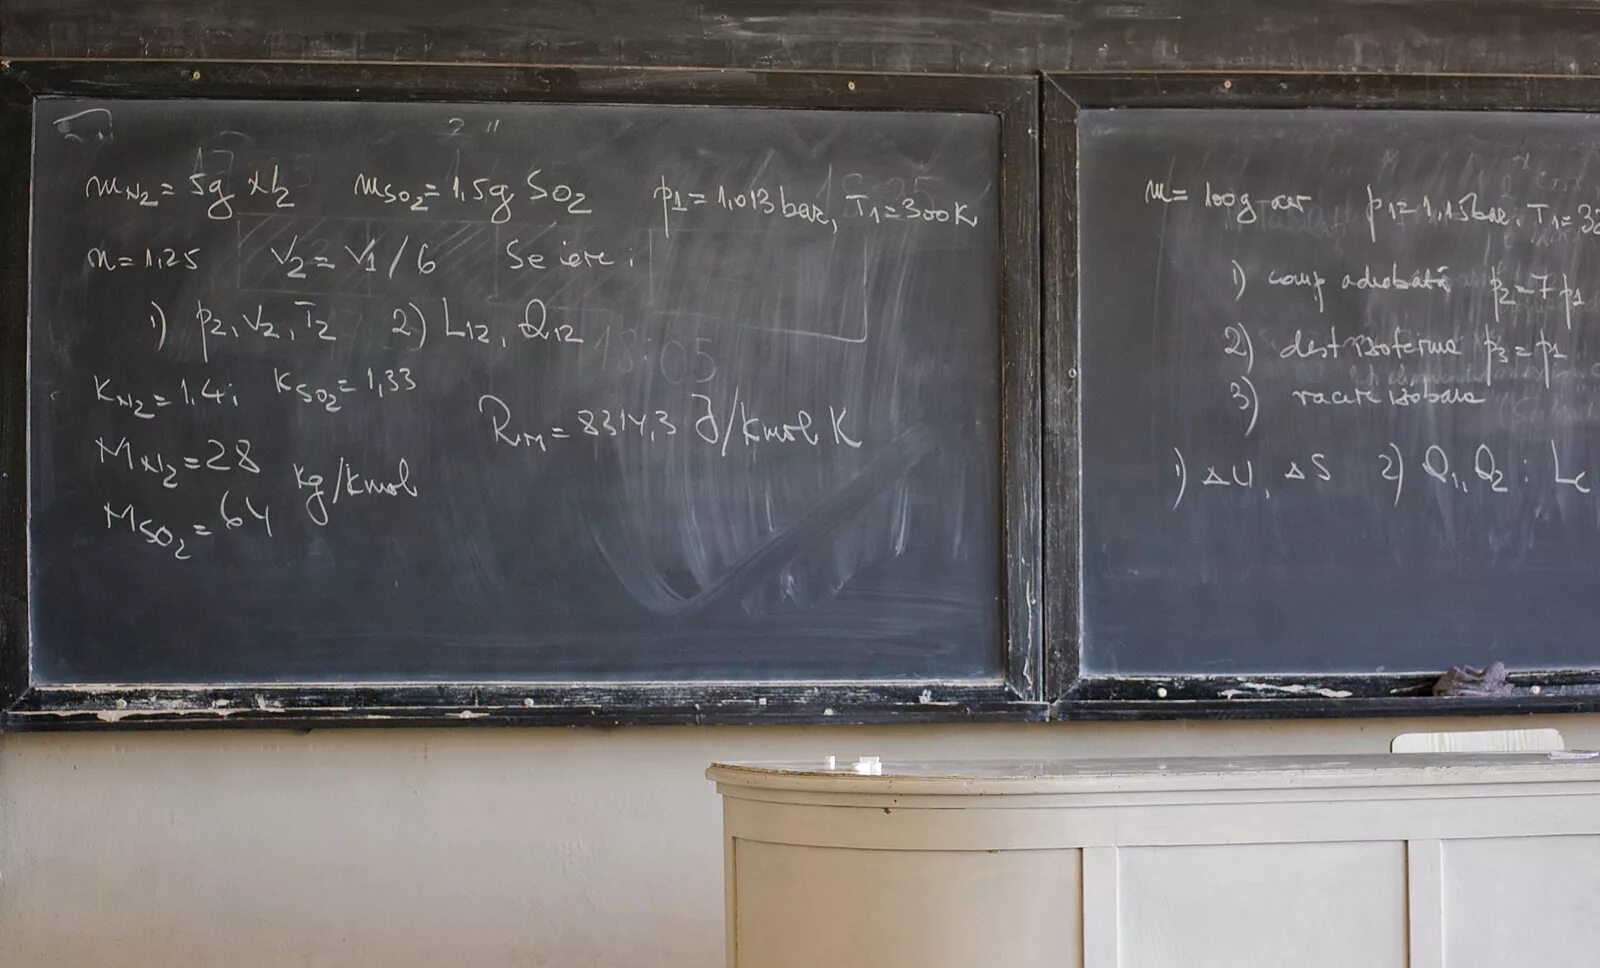 m_N2 = 5g N2 m_SO2 = 1,5g SO2 p1 = 1,013 bar, T1 = 300K
n = 1,25 V2 = V1/6 Se cere:
1) p2, V2, T2 2) L12, Q12
K_N2 = 1,4; K_SO2 = 1,33
R_M = 8314,3 J/kmol K
M_N2 = 28
kg/kmol
M_SO2 = 64
18:05
m = 100g aer p1 = 1,15bar, T1 = 32
1) comp adiabată p2 = 7p1
2) dest izoterma p3 = p1
3) racire izobara
1) ΔU, ΔS 2) Q1, Q2; Lc